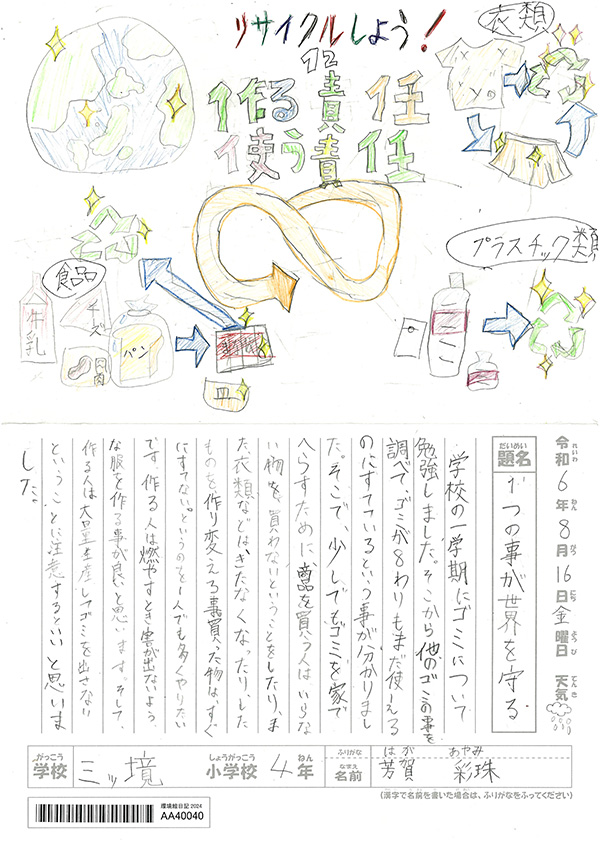 リサイクルしよう!
衣類
12
作る責任
使う責任
プラスチック類
食品
牛乳
チーズ
肉
パン
皿
令和6年8月16日金曜日 天気
れいわ ねん がつ にち ようび てんき
だいめい
題名
1つの事が世界を守る
学校の一学期にゴミについて
勉強しました。そこから他のゴミの事を
調べて、ゴミが8わりもまだ使える
のにすてているという事が分かりまし
た。そこで、少しでもゴミを家で
へらすために、商品を買う人はいらな
い物を買わないということをしたり、ま
た衣類などは、きたなくなったり、した
ものを作り変える事買った物は、すぐ
にすてない。というのを1人でも多くやりたい
です。作る人は燃やすとき害が出ないよう
な服を作る事が良いと思います。そして、
作る人は大量生産してゴミを出さない
ということに注意するといいと思いま
した。
がっこう しょうがっこう ねん
学校 三ッ境 小学校 4年
ふりがな はが あやみ
なまえ
名前 芳賀 彩珠
(漢字で名前を書いた場合は、ふりがなをふってください)
環境絵日記2024
AA40040